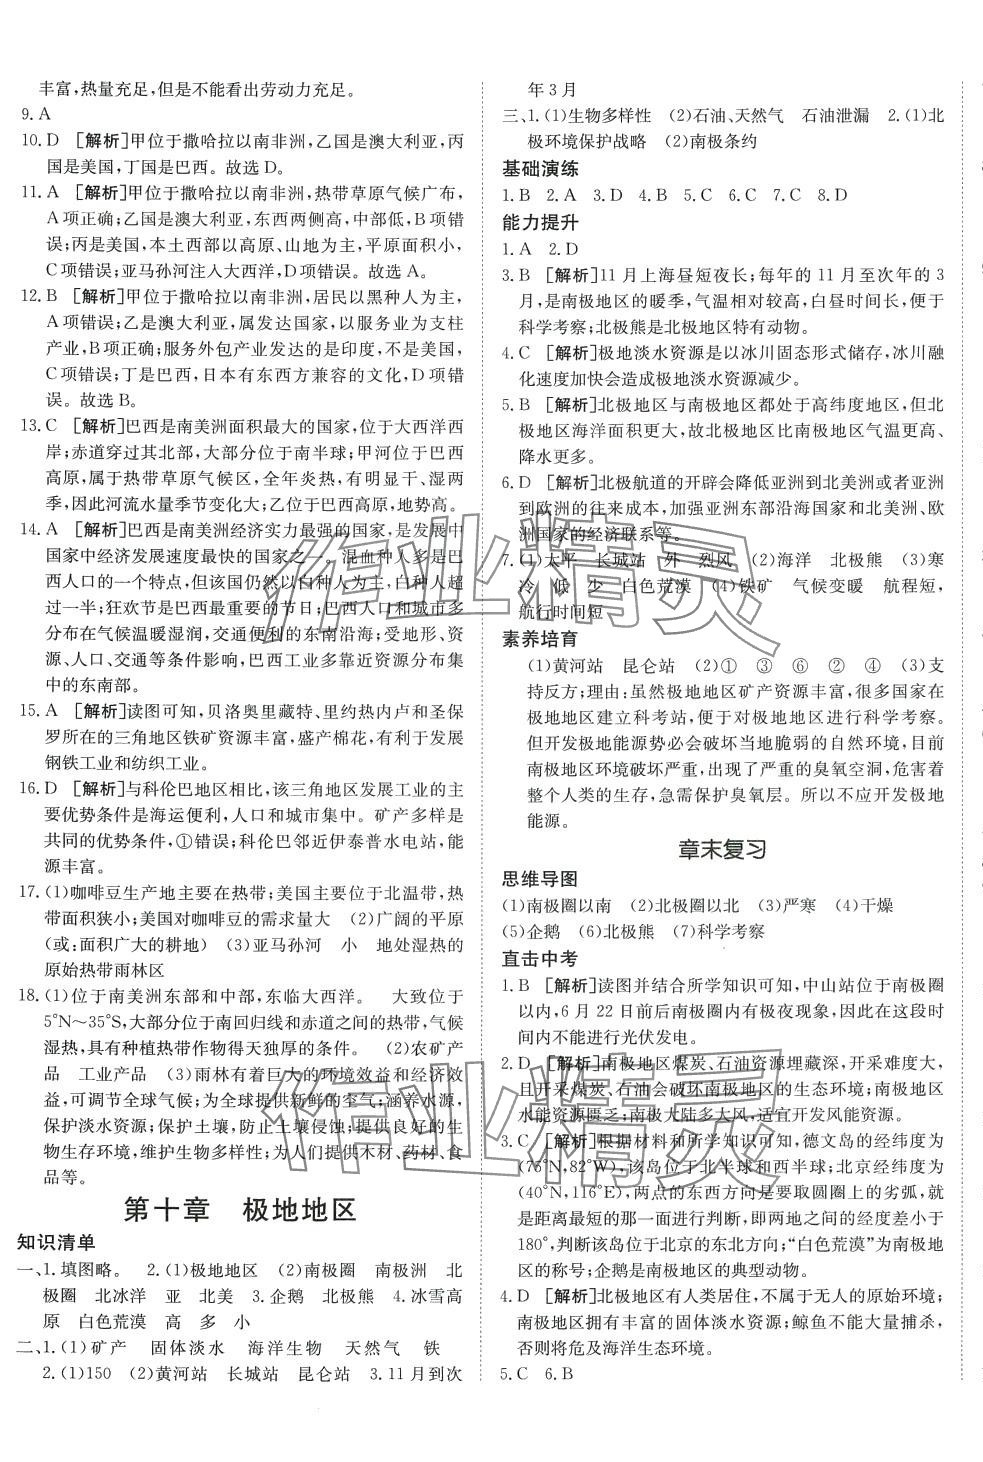 丰富,热量充足,但是不能看出劳动力充足。
9. A
10. D [解析]甲位于撒哈拉以南非洲,乙国是澳大利亚,丙
国是美国,丁国是巴西。故选 D。
11. A [解析]甲位于撒哈拉以南非洲,热带草原气候广布,
A 项正确;乙国是澳大利亚,东西两侧高,中部低,B 项错
误;丙是美国,本土西部以高原、山地为主,平原面积小,
C 项错误;亚马孙河注入大西洋,D 项错误。故选 A。
12. B [解析]甲位于撒哈拉以南非洲,居民以黑种人为主,
A 项错误;乙是澳大利亚,属发达国家,以服务业为支柱
产业,B 项正确;服务外包产业发达的是印度,不是美国,
C 项错误;丁是巴西,日本有东西方兼容的文化,D 项错
误。故选 B。
13. C [解析]巴西是南美洲面积最大的国家,位于大西洋西
岸;赤道穿过其北部,大部分位于南半球;甲河位于巴西
高原,属于热带草原气候区,全年炎热,有明显干、湿两
季,因此河流水量季节变化大;乙位于巴西高原,地势高。
14. A [解析]巴西是南美洲经济实力最强的国家,是发展中
国家中经济发展速度最快的国家之一。混血种人多是巴
西人口的一个特点,但该国仍然以白种人为主,白种人超
过一半;狂欢节是巴西最重要的节日;巴西人口和城市多
分布在气候温暖湿润,交通便利的东南沿海;受地形、资
源、人口、交通等条件影响,巴西工业多靠近资源分布集
中的东南部。
15. A [解析]读图可知,贝洛奥里藏特、里约热内卢和圣保
罗所在的三角地区铁矿资源丰富,盛产棉花,有利于发展
钢铁工业和纺织工业。
16. D [解析]与科伦巴地区相比,该三角地区发展工业的主
要优势条件是海运便利,人口和城市集中。矿产多样是
共同的优势条件,①错误;科伦巴邻近伊泰普水电站,能
源丰富。
17. (1)咖啡豆生产地主要在热带;美国主要位于北温带,热
带面积狭小;美国对咖啡豆的需求量大 (2)广阔的平原
(或:面积广大的耕地) (3)亚马孙河 小 地处湿热的
原始热带雨林区
18. (1)位于南美洲东部和中部,东临大西洋。 大致位于
5°N~35°S,大部分位于南回归线和赤道之间的热带,气候
湿热,具有种植热带作物得天独厚的条件。 (2)农矿产
品 工业产品 (3)雨林有着巨大的环境效益和经济效
益,可调节全球气候;为全球提供新鲜的空气;涵养水源,
保护淡水资源;保护土壤,防止土壤侵蚀;提供良好的生
物生存环境,维护生物多样性;为人们提供木材、药材、食
品等。
第十章 极地地区
知识清单
一、1. 填图略。 2. (1)极地地区 (2)南极圈 南极洲 北
极圈 北冰洋 亚 北美 3. 企鹅 北极熊 4. 冰雪高
原 白色荒漠 高 多 小
二、1. (1)矿产 固体淡水 海洋生物 天然气 铁
2. (1)150 (2)黄河站 长城站 昆仑站 3. 11 月到次
年 3 月
三、1. (1)生物多样性 (2)石油、天然气 石油泄漏 2. (1)北
极环境保护战略 (2)南极条约
基础演练
1. B 2. A 3. D 4. D 5. C 6. C 7. C 8. D
能力提升
1. A 2. D
3. B [解析]11 月上海昼短夜长;每年的 11 月至次年的 3
月,是南极地区的暖季,气温相对较高,白昼时间长,便于
科学考察;北极熊是北极地区特有动物。
4. C [解析]极地淡水资源是以冰川固态形式储存,冰川融
化速度加快会造成极地淡水资源减少。
5. B [解析]北极地区与南极地区都处于高纬度地区,但北
极地区海洋面积更大,故北极地区比南极地区气温更高、
降水更多。
6. D [解析]北极航道的开辟会降低亚洲到北美洲或者亚洲
到欧洲的往来成本,加强亚洲东部沿海国家和北美洲、欧
洲国家的经济联系等。
7. (1)太平 长城站 外 烈风 (2)海洋 北极熊 (3)寒
冷 低 少 白色荒漠 (4)铁矿 气候变暖 航程短,
航行时间短
素养培育
(1)黄河站 昆仑站 (2)① ③ ⑥ ② ④ (3)支
持反方;理由:虽然极地地区矿产资源丰富,很多国家在
极地地区建立科考站,便于对极地地区进行科学考察。
但开发极地能源势必会破坏当地脆弱的自然环境,目前
南极地区环境破坏严重,出现了严重的臭氧空洞,危害着
整个人类的生存,急需保护臭氧层。所以不应开发极地
能源。
章末复习
思维导图
(1)南极圈以南 (2)北极圈以北 (3)严寒 (4)干燥
(5)企鹅 (6)北极熊 (7)科学考察
直击中考
1. B [解析]读图并结合所学知识可知,中山站位于南极圈
以内,6 月 22 日前后南极圈内有极夜现象,因此在这段时
间内不能进行光伏发电。
2. D [解析]南极地区煤炭、石油资源埋藏深,开采难度大,
且开采煤炭、石油会破坏南极地区的生态环境;南极地区
水能资源匮乏;南极大陆多大风,适宜开发风能资源。
3. C [解析]根据材料和所学知识可知,德文岛的经纬度为
(75°N,82°W),该岛位于北半球和西半球;北京的经纬度为
(40°N,116°E),两点的东西方向是要取圆圈上的劣弧,就
是距离最短的那一面进行判断,即两地之间的经度差小于
180°,判断该岛位于北京的东北方向;“白色荒漠”为南极地
区的称号;企鹅是南极地区的典型动物。
4. D [解析]北极地区有人类居住,不属于无人的原始环境;
南极地区拥有丰富的固体淡水资源;鲸鱼不能大量捕杀,
否则将危及海洋生态环境。
5. C 6. B
作业精灵
作业精灵